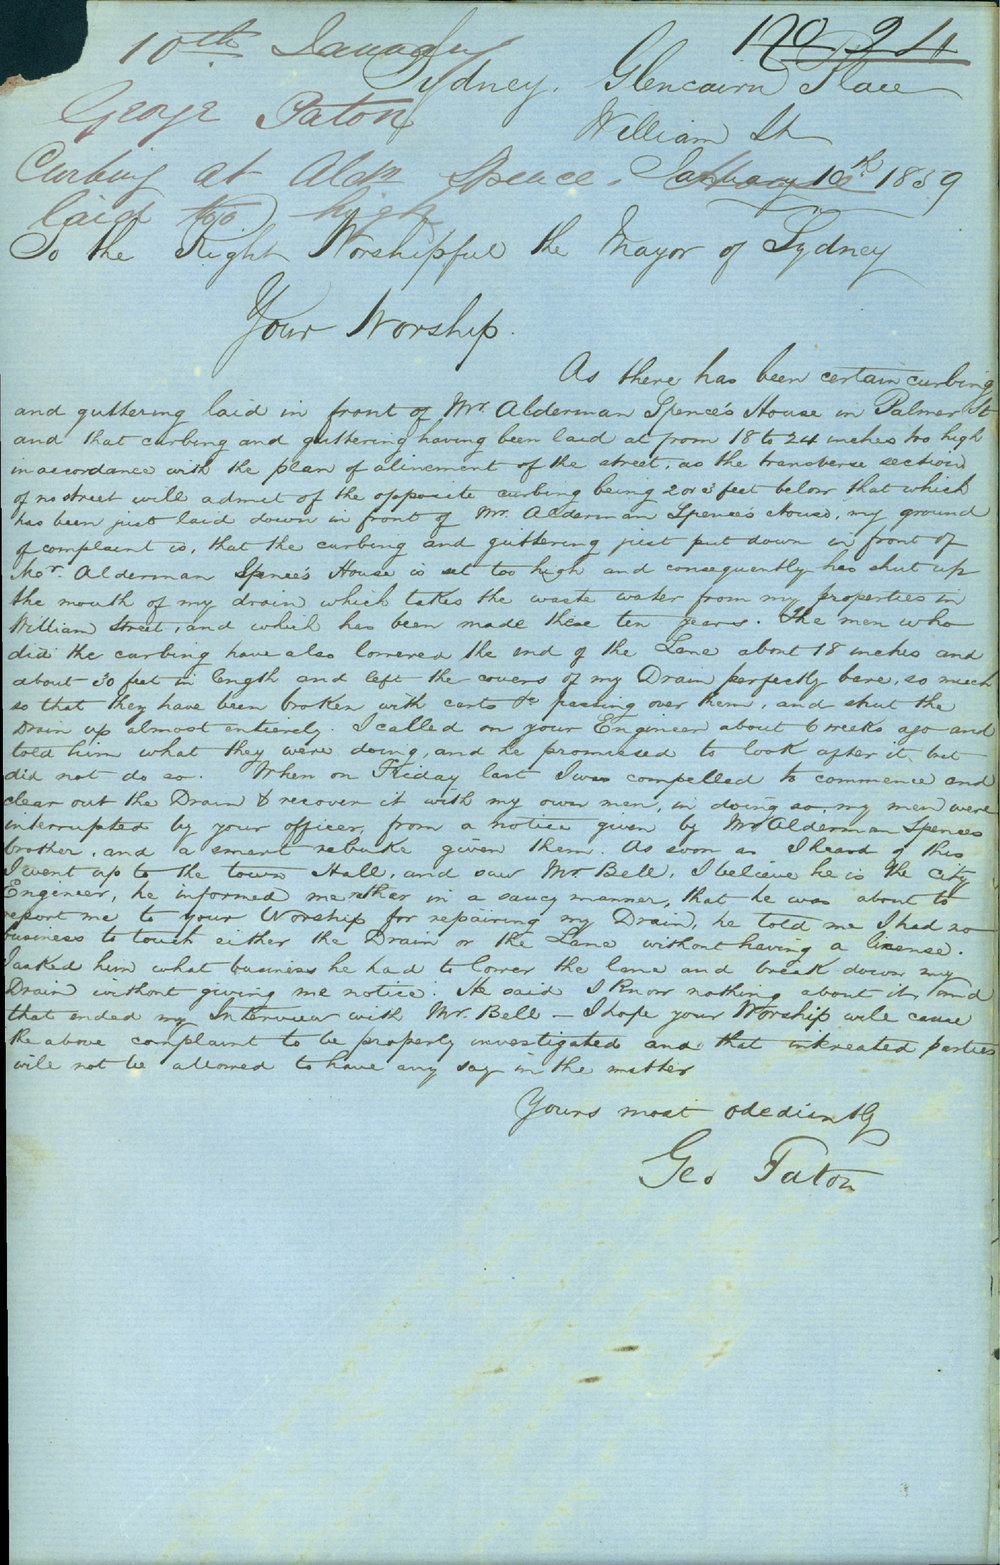 No 24
10th January
George Paton
Curbing at Aldn Spence.
laid too high
Sydney, Glencairn Place
William St
January 10th 1859
To the Right Worshipful the Mayor of Sydney
Your Worship.
As there has been certain curbing
and guttering laid in front of Mr. Alderman Spence's House in Palmer St
and that curbing and guttering having been laid at from 18 to 24 inches too high
in accordance with the plan of alinement of the street, as the transverse section
of no street will admit of the opposite curbing being 2 or 3 feet below that which
has been just laid down in front of Mr. Alderman Spence's House, my ground
of complaint is, that the curbing and guttering just put down in front of
Mr. Alderman Spence's House is set too high and consequently has shut up
the mouth of my drain which takes the waste water from my properties in
William Street, and which has been made these ten years. The men who
did the curbing have also lowered the end of the Lane about 18 inches and
about 30 feet in length and left the covers of my Drain perfectly bare, so much
so that they have been broken with carts &c passing over them, and shut the
Drain up almost entirely. I called on your Engineer about 6 weeks ago and
told him what they were doing, and he promised to look after it but
did not do so. When on Friday last I was compelled to commence and
clear out the Drain & recover it with my own men, in doing so my men were
interrupted by your officer, from a notice given by Mr Alderman Spences
brother, and a smart rebuke given them. As soon as I heard of this
I went up to the town Hall, and saw Mr Bell, I believe he is the City
Engineer, he informed me rather in a saucy manner, that he was about to
report me to your Worship for repairing my Drain, he told me I had no
business to touch either the Drain or the Lane without having a license.
I asked him what business he had to lower the lane and break down my
Drain without giving me notice. He said I know nothing about it and
that ended my Interview with Mr. Bell — I hope your Worship will cause
the above complaint to be properly investigated and that interested parties
will not be allowed to have any say in the matter
Yours most obediently
Geo Paton